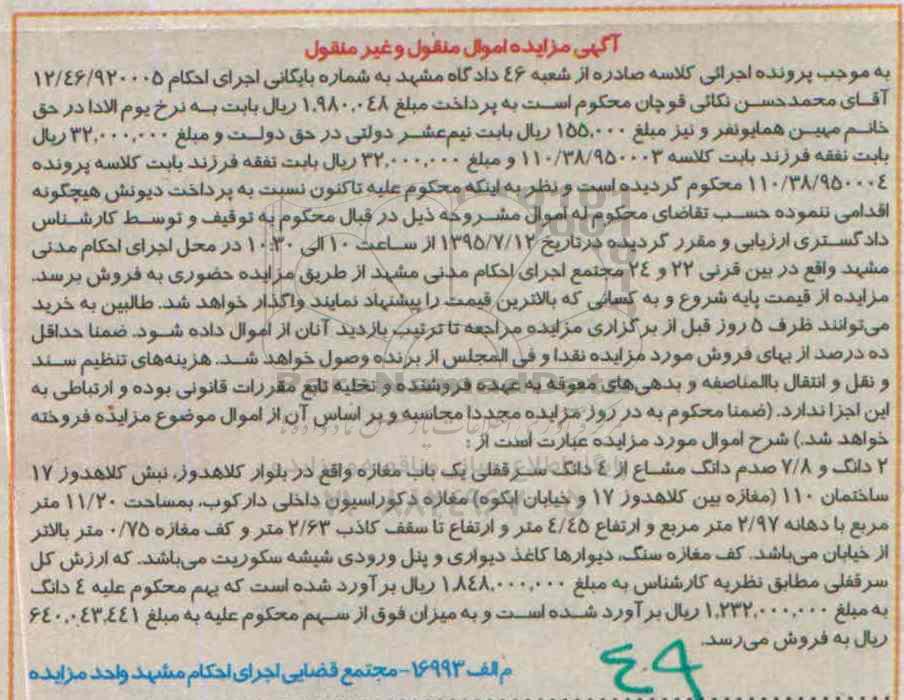 آگهی مزایده اموال منقول و غیر منقول
به موجب پرونده اجرائی کلاسه صادره از شعبه ٤٦ دادگاه مشهد به شماره بایگانی اجرای احکام ۱۲/٤٦/۹۲۰۰۰۵
آقای محمدحسن نکائی قوچان محکوم است به پرداخت مبلغ ۱،۹۸۰،۰٤۸ ریال بابت به نرخ یوم الادا در حق
خانم مهین همایونفر و نیز مبلغ ۱۵۵،۰۰۰ ریال بابت نیم‌عشر دولتی در حق دولت و مبلغ ۳۲،۰۰۰،۰۰۰ ریال
بابت نفقه فرزند بابت کلاسه ۱۱۰/۳۸/۹۵۰۰۰۳ و مبلغ ۳۲،۰۰۰،۰۰۰ ریال بابت نفقه فرزند بابت کلاسه پرونده
۱۱۰/۳۸/۹۵۰۰۰٤ محکوم گردیده است و نظر به اینکه محکوم علیه تاکنون نسبت به پرداخت دیونش هیچگونه
اقدامی ننموده حسب تقاضای محکوم له اموال مشروحه ذیل در قبال محکوم به توقیف و توسط کارشناس
دادگستری ارزیابی و مقرر گردیده درتاریخ ۱۳۹۵/۷/۱۲ از ساعت ۱۰ الی ۱۰:۳۰ در محل اجرای احکام مدنی
مشهد واقع در بین قرنی ۲۲ و ۲٤ مجتمع اجرای احکام مدنی مشهد از طریق مزایده حضوری به فروش برسد.
مزایده از قیمت پایه شروع و به کسانی که بالاترین قیمت را پیشنهاد نمایند واگذار خواهد شد. طالبین به خرید
می‌توانند ظرف ۵ روز قبل از برگزاری مزایده مراجعه تا ترتیب بازدید آنان از اموال داده شود. ضمنا حداقل
ده درصد از بهای فروش مورد مزایده نقدا و فی المجلس از برنده وصول خواهد شد. هزینه‌های تنظیم سند
و نقل و انتقال باالمناصفه و بدهی‌های معونه به عهده فروشنده و تخلیه تابع مقررات قانونی بوده و ارتباطی به
این اجرا ندارد. (ضمنا محکوم به در روز مزایده مجددا محاسبه و بر اساس آن از اموال موضوع مزایده فروخته
خواهد شد.) شرح اموال مورد مزایده عبارت است از :
۲ دانگ و ۷/۸ صدم دانگ مشاع از ٤ دانگ سرقفلی یک باب مغازه واقع در بلوار کلاهدوز، نبش کلاهدوز ۱۷
ساختمان ۱۱۰ (مغازه بین کلاهدوز ۱۷ و خیابان ابکوه) مغازه دکوراسیون داخلی دارکوب، بمساحت ۱۱/۲۰ متر
مربع با دهانه ۲/۹۷ متر مربع و ارتفاع ٤/٤۵ متر و ارتفاع تا سقف کاذب ۲/۶۳ متر و کف مغازه ۰/۷۵ متر بالاتر
از خیابان می‌باشد. کف مغازه سنگ، دیوارها کاغذ دیواری و پنل ورودی شیشه سکوریت می‌باشد. که ارزش کل
سرقفلی مطابق نظریه کارشناس به مبلغ ۱،۸٤۸،۰۰۰،۰۰۰ ریال برآورد شده است که بهم محکوم علیه ٤ دانگ
به مبلغ ۱،۲۳۲،۰۰۰،۰۰۰ ریال برآورد شده است و به میزان فوق از سهم محکوم علیه به مبلغ ۶٤۰،۰٤۳،٤٤۱
ریال به فروش می‌رسد.
م الف ۱۶۹۹۳- مجتمع قضایی اجرای احکام مشهد واحد مزایده
٤٩